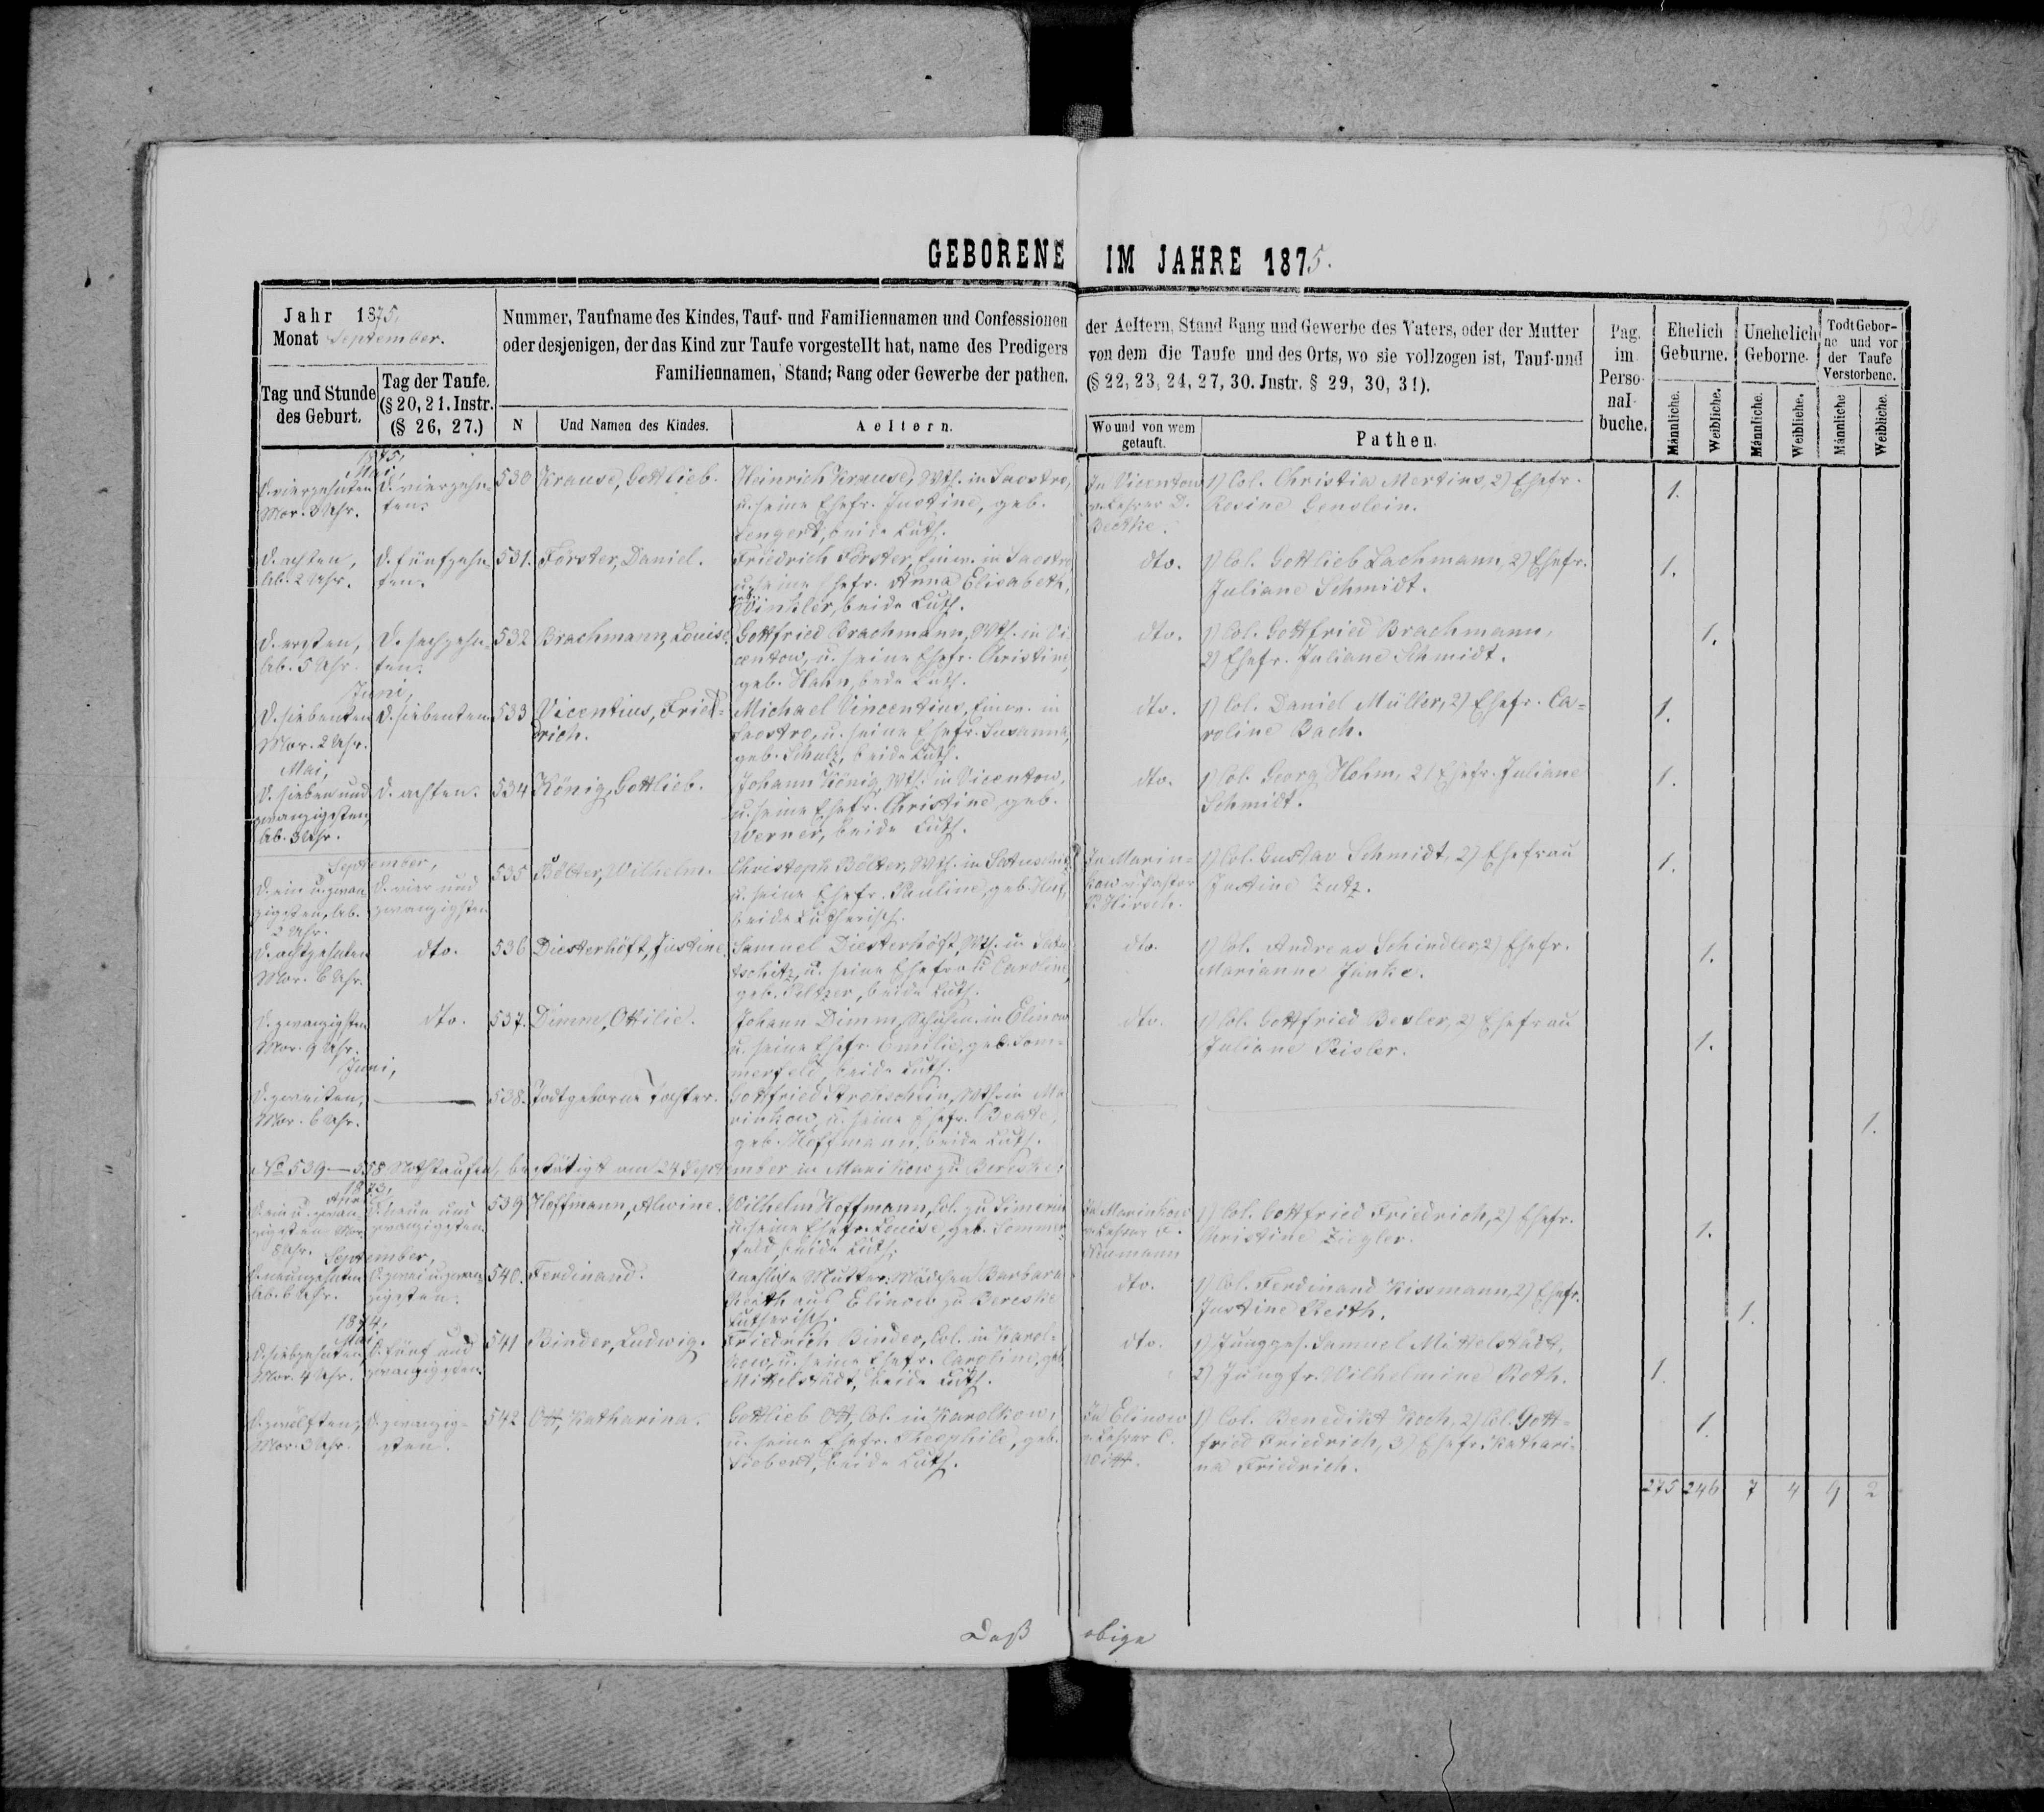 GEBORENE IM JAHRE 1875.
Jahr 1875,
Monat September.
Tag und Stunde
des Geburt.
Tag der Taufe.
(§ 20, 21. Instr.
(§ 26, 27.)
Nummer, Taufname des Kindes, Tauf- und Familiennamen und Confessionen
oder desjenigen, der das Kind zur Taufe vorgestellt hat, name des Predigers
Familiennamen, Stand; Rang oder Gewerbe der pathen.
N
Und Namen des Kindes.
Aeltern.
der Aeltern, Stand Rang und Gewerbe des Vaters, oder der Mutter
von dem die Taufe und des Orts, wo sie vollzogen ist, Tauf-und
(§ 22, 23, 24, 27, 30. Jnstr. § 29, 30, 31).
Wo und von wem
getauft.
Pathen.
Pag.
im
Perso-
nal-
buche.
Ehelich
Geburne.
Unehelich
Geborne.
Todt Gebor-
ne und vor
der Taufe
Verstorbene.
Männliche.
Weibliche.
Männliche.
Weibliche.
Männliche
Weibliche.
1875,
Mai,
D. vierzehnten
Mor. 3 Uhr.
D. vierzehn-
ten.
530
Krause, Gottlieb.
Heinrich Krause, Wth. in Saostro,
u. seine Ehefr. Justine, geb.
Lengert, beide Luth.
In Vicentow
v. Lehrer D.
Bethke.
1) Col. Christia Mertins, 2) Ehefr.
Rosine Genslein.
1.
D. achten,
Ab. 2 Uhr.
D. fünfzehn-
ten.
531.
Förster, Daniel.
Friedrich Förster, Einw. in Saostro
u. seine Ehefr. Anna Elisabeth,
geb. Winkler, beide Luth.
dto.
1) Col. Gottlieb Lachmann, 2) Ehefr.
Juliane Schmidt.
1.
D. ersten,
Ab. 5 Uhr.
D. sechzehn-
ten.
532
Brachmann, Louise.
Gottfried Brachmann, Wth. in Vi-
centow, u. seine Ehefr. Christine,
geb. Hahn, beide Luth.
dto.
1) Col. Gottfried Brachmann,
2) Ehefr. Juliane Schmidt.
1.
Juni,
D. siebenten
Mor. 2 Uhr.
D. siebenten
533
Vicentius, Fried-
rich.
Michael Vincentius, Einw. in
Saostro, u. seine Ehefr. Susanna,
geb. Schulz, beide Luth.
dto.
1) Col. Daniel Müller, 2) Ehefr. Ca-
roline Bach.
1.
Mai,
D. sieben und
zwanzigsten,
Ab. 3 Uhr.
D. achten.
534
König, Gottlieb.
Johann König, Wth. in Vicentow,
u. seine Ehefr. Christine geb.
Werner, beide Luth.
dto.
1) Col. Georg Hohm, 2) Ehefr. Juliane
Schmidt.
1.
September,
D. ein u. zwan-
zigsten, Ab.
2 Uhr.
D. vier und
zwanzigsten
535
Bölter, Wilhelm.
Christoph Bölter, Wth. in
u. seine Ehefr. Pauline, geb.
beide Lutherisch.
In Marin-
kow v. Pastor
P. Hirsch.
1) Col. Gustav Schmidt, 2) Ehefrau
Justine Zutz.
1.
D. achtzehnten
Mor. 6 Uhr.
dto.
536
Diesterhöft, Justine.
Samuel Diesterhöft, Wth. in
u. seine Ehefrau Caroline,
geb. Peltzer, beide Luth.
dto.
1) Col. Andreas Schindler, 2) Ehefr.
Marianne Janke.
1.
D. zwanzigsten
Mor. 9 Uhr.
dto.
537.
Dimm, Ottilie.
Johann Dimm, in Elinow
u. seine Ehefr. Emilie, geb. Som-
merfeld, beide Luth.
dto.
1) Col. Gottfried Besler, 2) Ehefrau
Juliane Risler.
1.
Juni,
D. zweiten,
Mor. 6 Uhr.
538.
Todtgeborne Tochter.
Gottfried Strohschein, Wth. in Ma-
rinkow, u. seine Ehefr. Beate,
geb. Hoffmann, beide Luth.
1.
No 539–558 Nothtaufen, bestätigt am 24 September in Marikow zu Bereske:
1873,
April,
D. ein u. zwan-
zigsten Mor.
8 Uhr.
D. neun und
zwanzigsten
539
Hoffmann, Alwine.
Wilhelm Hoffmann, Col. zu
u. seine Ehefr. Louise, geb. Sommer-
feld, beide Luth.
In Marinkow
v. Lehrer F.
Neumann
1) Col. Gottfried Friedrich, 2) Ehefr.
Christine Ziegler.
1.
September,
D. neunzehnten
Ab. 6 Uhr.
D. zwei u. zwan-
zigsten.
540.
Ferdinand.
Unehliche Mutter: Mädchen Barbara
Reith aus Elinow zu Bereske
Lutherisch.
dto.
1) Col. Ferdinand Rissmann, 2) Ehefr.
Justine Reith.
1.
1874,
Mai
D. siebzehnten,
Mor. 4 Uhr.
D. fünf und
zwanzigsten.
541
Binder, Ludwig.
Friedrich Binder, Col. in Karol-
kow, u. seine Ehefr. Caroline, geb.
Mittelstädt, beide Luth.
dto.
1) Jungges. Samuel Mittelstädt,
2) Jungfr. Wilhelmine Roth.
1.
D. zwölften,
Mor. 3 Uhr.
D. zwanzig-
sten.
542
Ott, Katharina.
Gottlieb Ott, Col. in Karolkow,
u. seine Ehefr. Theophile, geb.
Siebert, beide Luth.
In Elinow
v. Lehrer C.
Witt.
1) Col. Benedikt Koch, 2) Col. Gott-
fried Friedrich, 3) Ehefr. Kathari-
na Friedrich.
1.
275 246 7 4 9 2
Daß obige